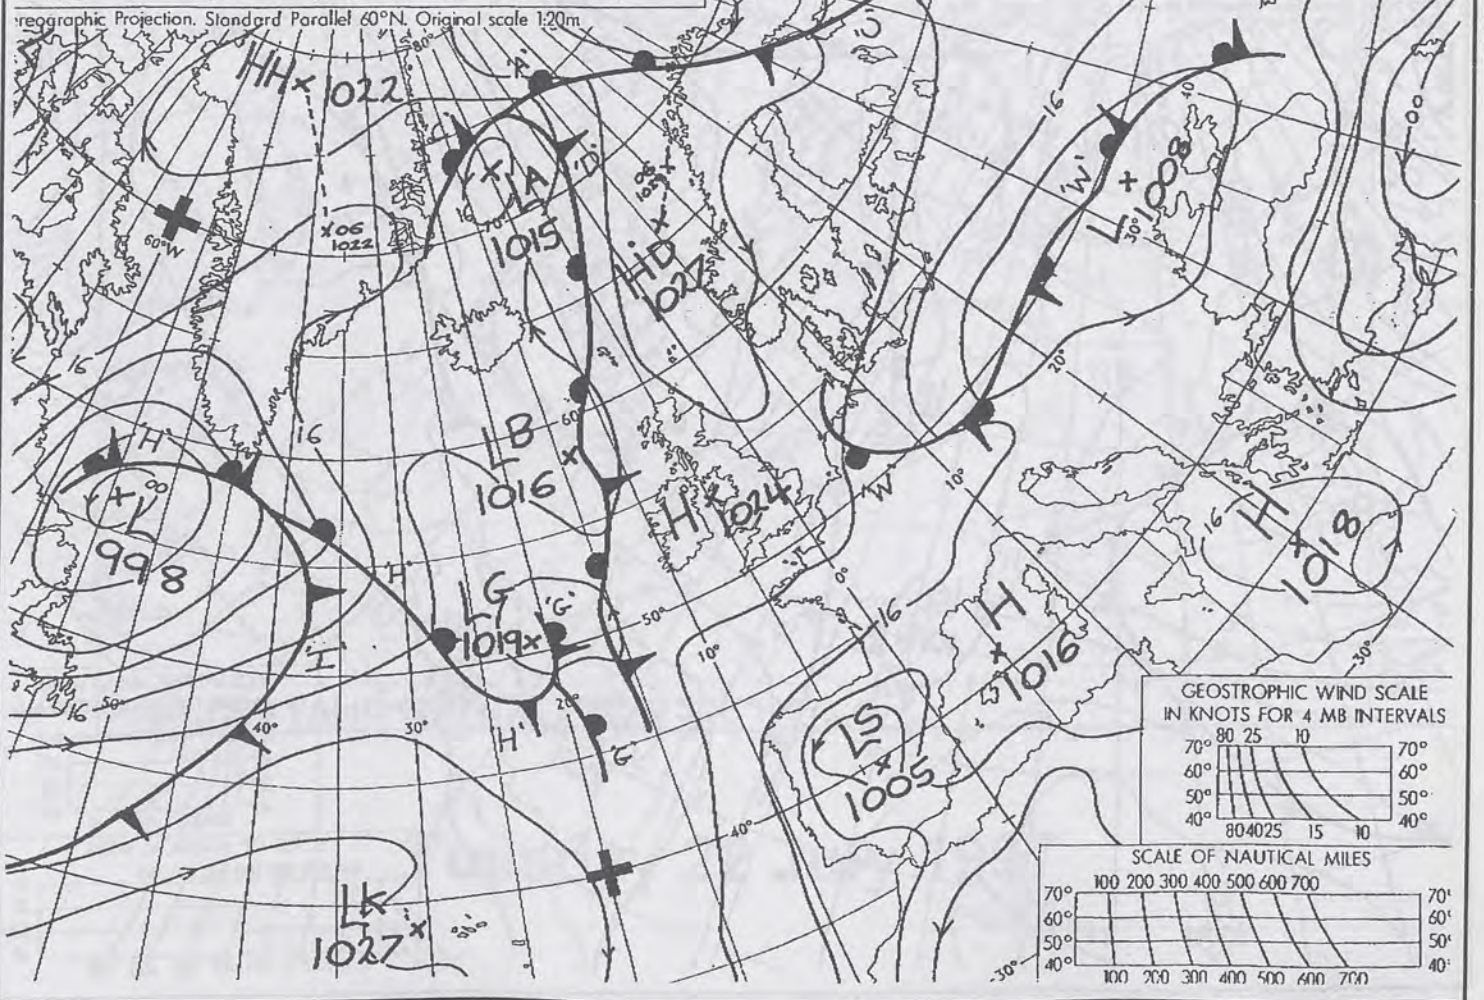 reographic Projection. Standard Parallel 60°N. Original scale 1:20m
80°
HH x 1022
'A'
'C'
40°
16
'W'
L 1008
30°
0
0
LA
1015
16
70°
'D'
06
1022
HD
1027
x06
1022
60°W
20°
16
'H'
16
60°
LB
1016
L
998
'W'
10°
H 1024
16
H
1018
'H'
LG
1019x
'G'
50°
0°
16
H
1016
'I'
10°
30°
16
50°
40°
30°
20°
'H'
'G'
LS
1005
40°
LK
1027
30°
GEOSTROPHIC WIND SCALE
IN KNOTS FOR 4 MB INTERVALS
80 25 10
70° 70°
60° 60°
50° 50°
40° 40°
80 40 25 15 10
SCALE OF NAUTICAL MILES
100 200 300 400 500 600 700
70° 70°
60° 60°
50° 50°
40° 40°
100 200 300 400 500 600 700